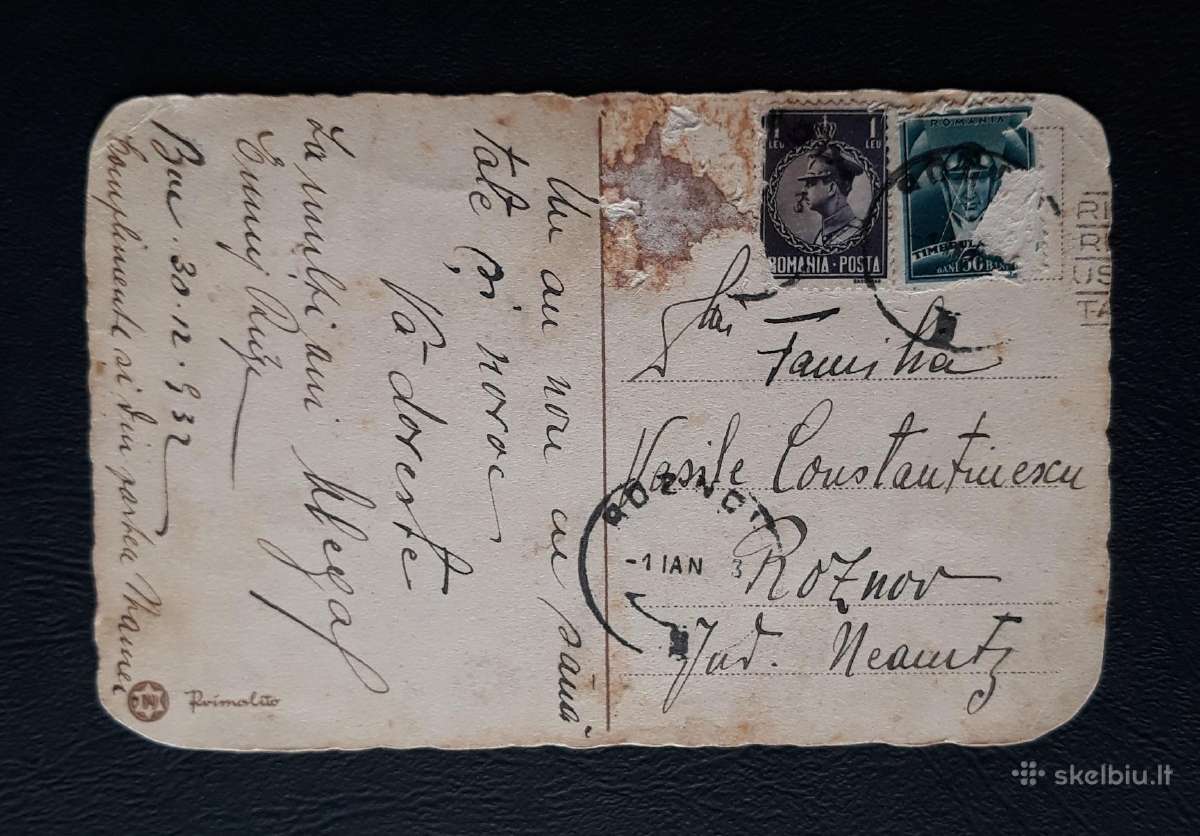 Un an nou cu sănă-
tate și noroc
Vă dorește
La mulți ani
Buc. 30.12.932
Complimente si din partea Mamei
Primolito
1 LEU 1 LEU
ROMANIA·POSTA
ROMANIA
TIMBRUL A
BANI 50 BANI
Familia
Vasile Constantinescu
Roznov
Jud. Neamtz
ROZNOV
-1 IAN 3
skelbiu.lt